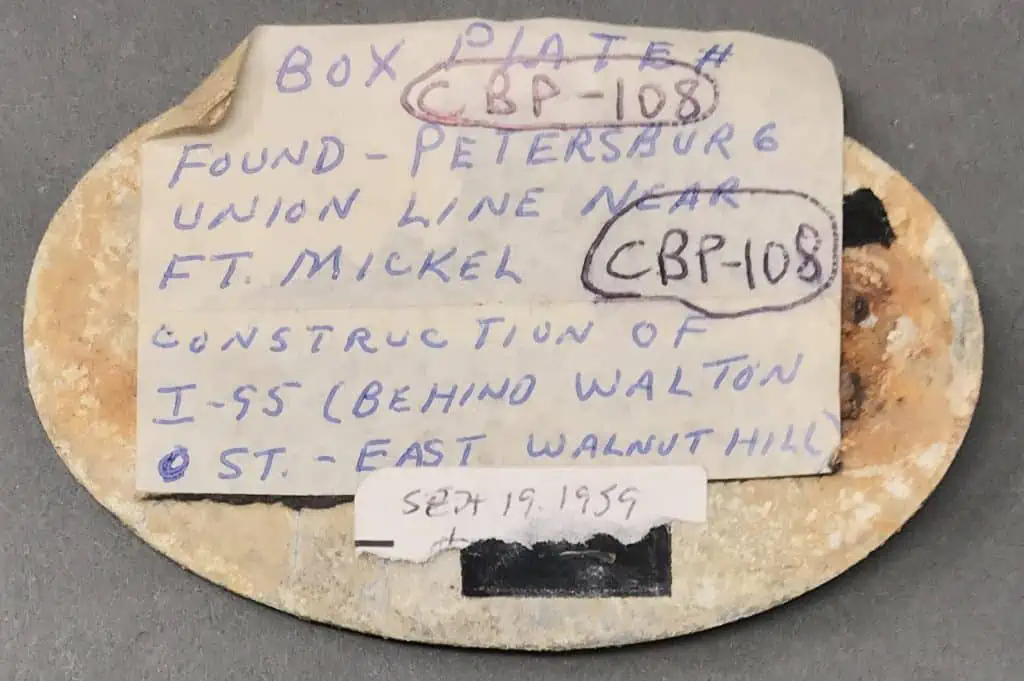 BOX PLATE #
CBP-108
FOUND - PETERSBURG
UNION LINE NEAR
FT. MICKEL
CBP-108
CONSTRUCTION OF
I-95 (BEHIND WALTON
ST. - EAST WALNUT HILL)
SEPT 19. 1959